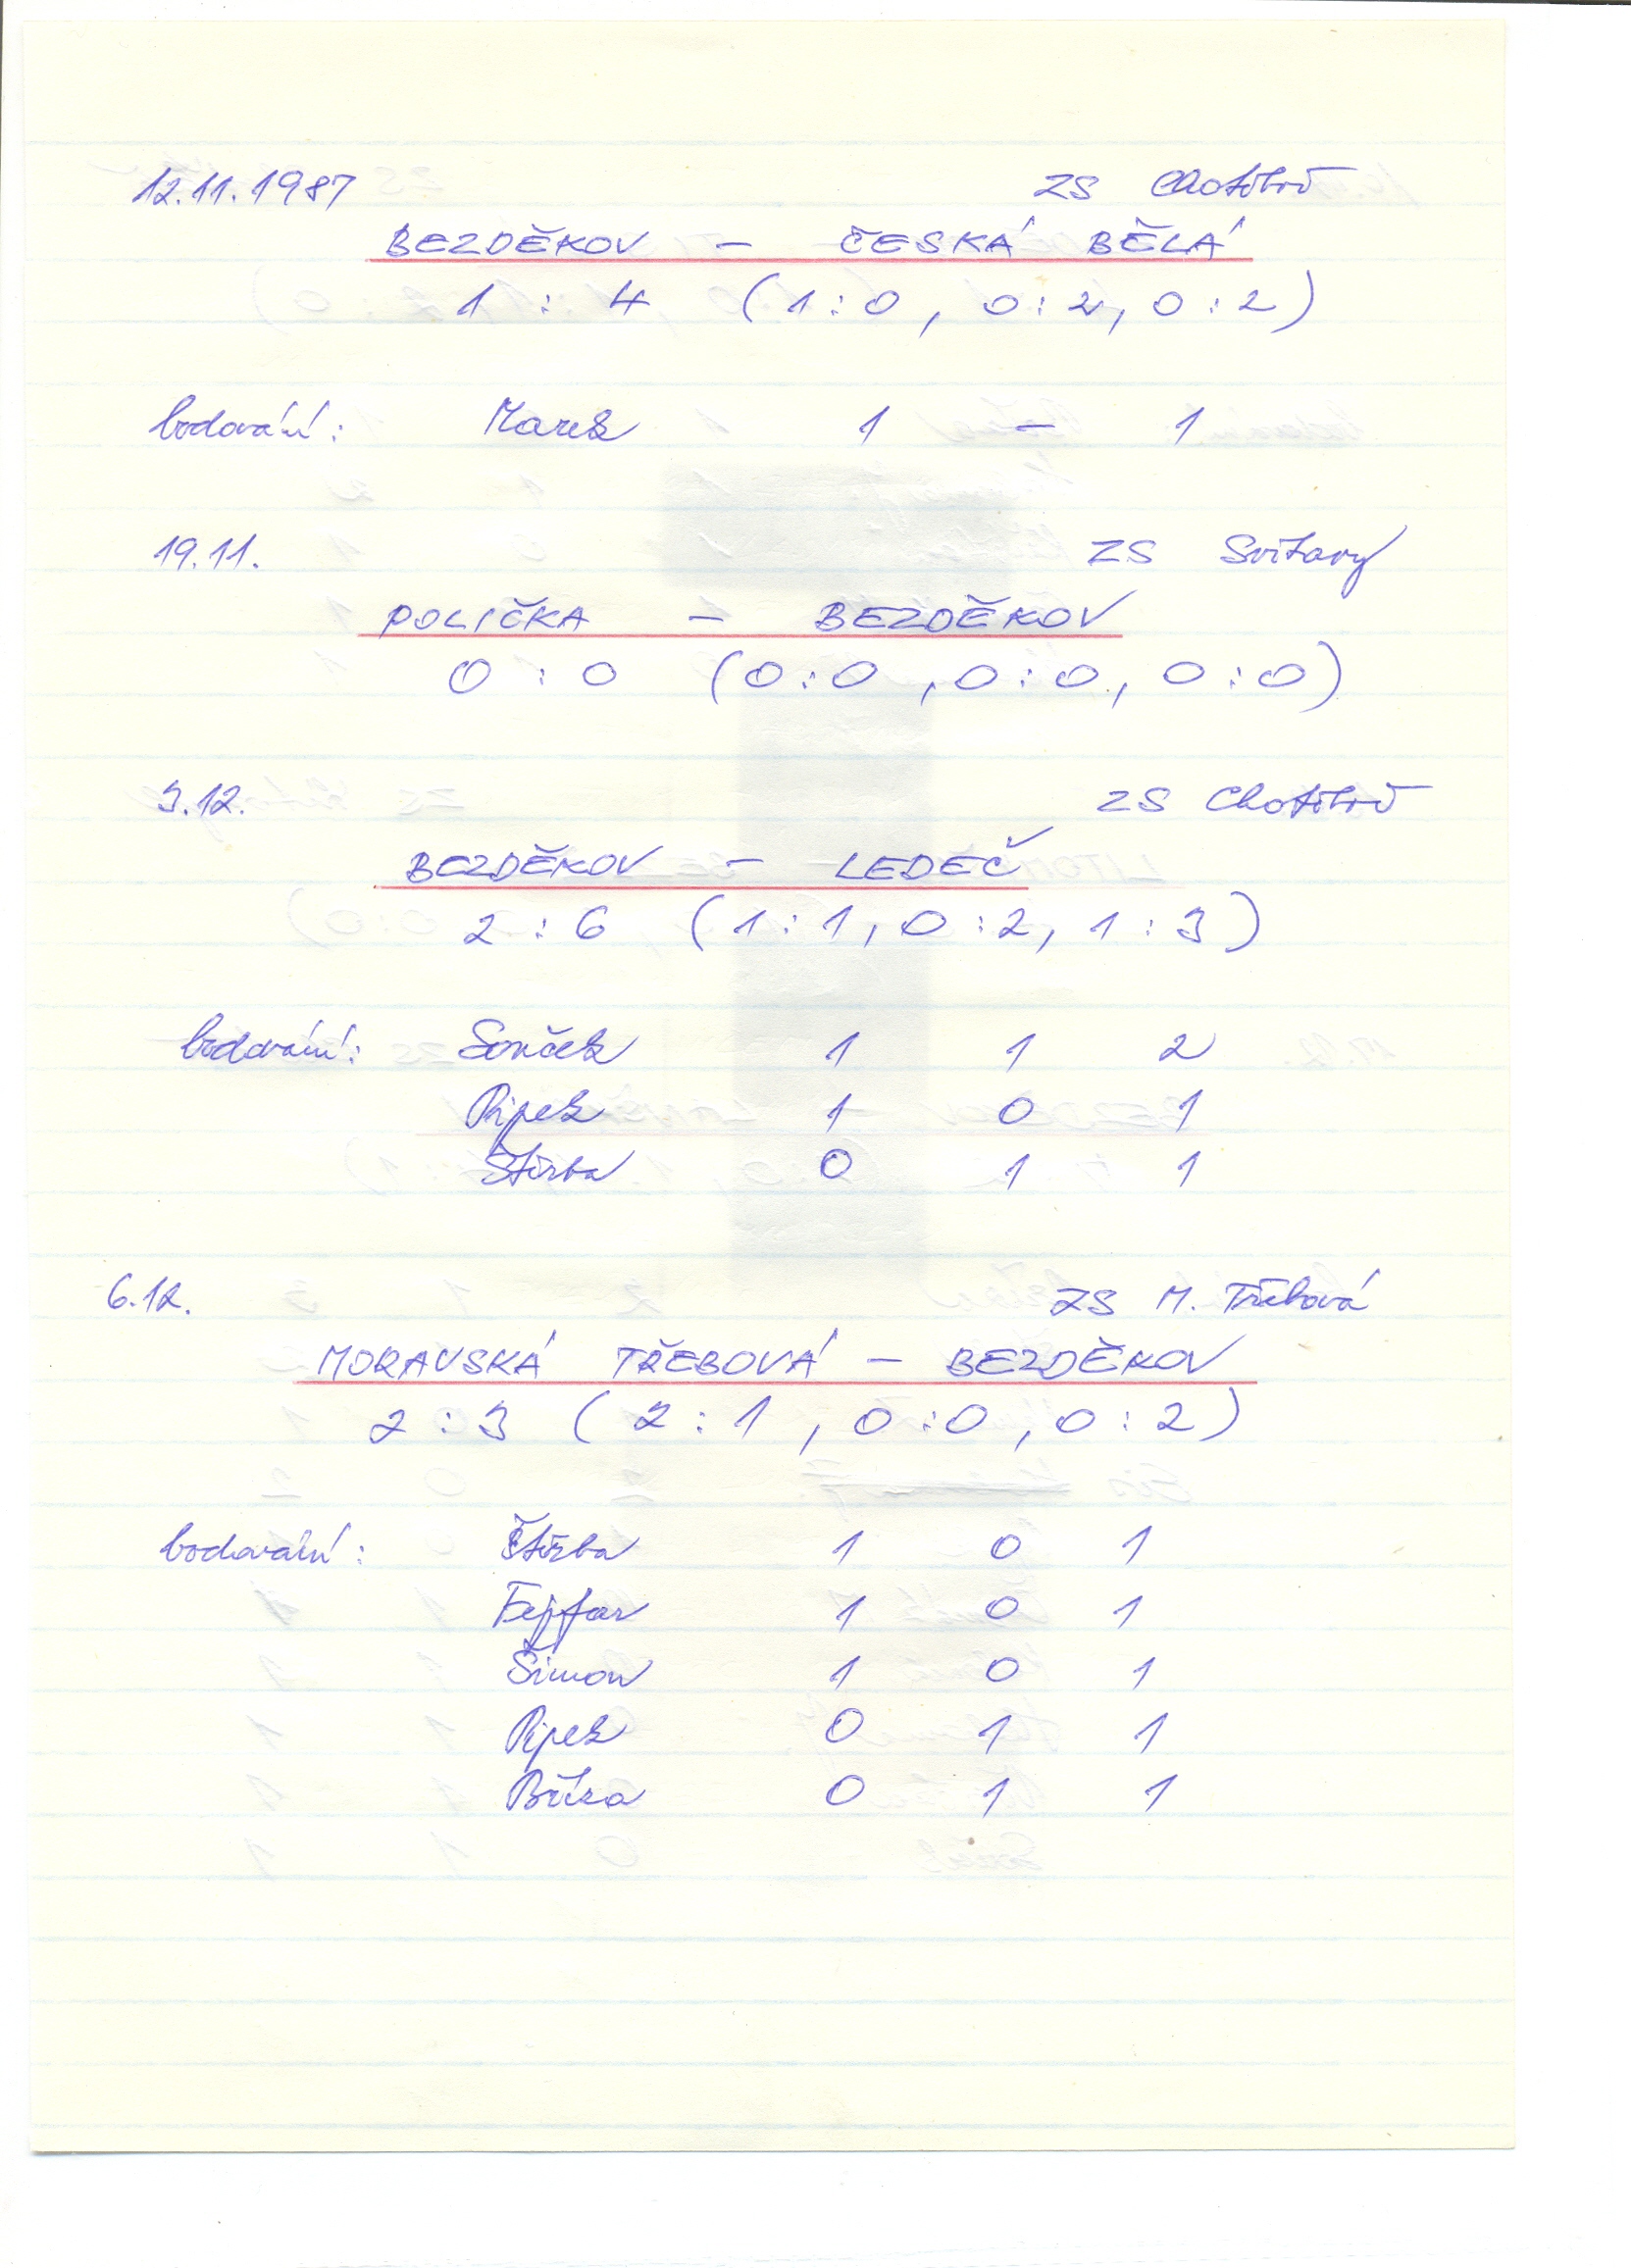 12.11.1987 ZS Chotěboř
BEZDĚKOV - ČESKÁ BĚLÁ
1 : 4 (1:0, 0:2, 0:2)
bodování: Marek 1 - 1
19.11. ZS Svitavy
POLIČKA - BEZDĚKOV
0 : 0 (0:0, 0:0, 0:0)
3.12. ZS Chotěboř
BEZDĚKOV - LEDEČ
2 : 6 (1:1, 0:2, 1:3)
bodování: Souček 1 1 2
Pipek 1 0 1
Štirba 0 1 1
6.12. ZS M. Třebová
MORAVSKÁ TŘEBOVÁ - BEZDĚKOV
2 : 3 (2:1, 0:0, 0:2)
bodování: Štirba 1 0 1
Fejfar 1 0 1
Šimon 1 0 1
Pipek 0 1 1
0 1 1